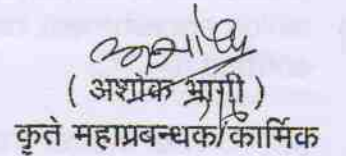 ( अशोक भागी )
कृते महाप्रबन्धक/कार्मिक